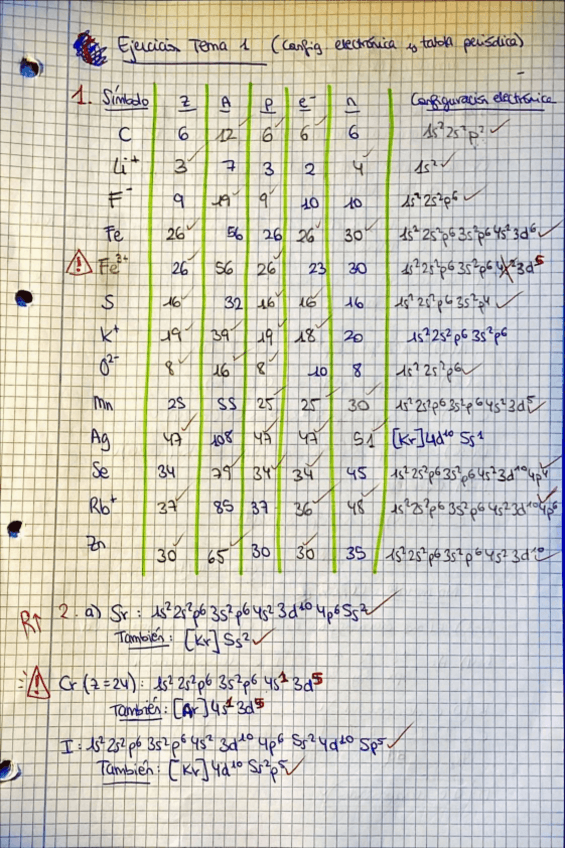 Ejercicios Tema 1 (Config electrónica y tabla periódica)
1. Símbolo Z A p e⁻ n Configuración electrónica
C 6 12 ✓ 6 ✓ 6 ✓ 6 1s² 2s² p² ✓
Li⁺ 3 ✓ 7 3 2 4 ✓ 1s² ✓
F⁻ 9 19 ✓ 9 ✓ 10 10 1s² 2s² p⁶ ✓
Fe 26 ✓ 56 26 26 ✓ 30 ✓ 1s² 2s² p⁶ 3s² p⁶ 4s² 3d⁶ ✓
⚠ Fe³⁺ 26 ✓ 56 26 ✓ 23 30 1s² 2s² p⁶ 3s² p⁶ 3d⁵
S 16 ✓ 32 16 ✓ 16 ✓ 16 1s² 2s² p⁶ 3s² p⁴ ✓
K⁺ 19 ✓ 39 ✓ 19 ✓ 18 ✓ 20 1s² 2s² p⁶ 3s² p⁶
O²⁻ 8 ✓ 16 8 ✓ 10 8 1s² 2s² p⁶ ✓
Mn 25 55 25 ✓ 25 ✓ 30 ✓ 1s² 2s² p⁶ 3s² p⁶ 4s² 3d⁵ ✓
Ag 47 ✓ 108 47 ✓ 47 ✓ 51 ✓ [Kr] 4d¹⁰ 5s¹
Se 34 79 ✓ 34 ✓ 34 ✓ 45 1s² 2s² p⁶ 3s² p⁶ 4s² 3d¹⁰ 4p⁴ ✓
Rb⁺ 37 ✓ 85 37 36 ✓ 48 ✓ 1s² 2s² p⁶ 3s² p⁶ 4s² 3d¹⁰ 4p⁶ ✓
Zn 30 ✓ 65 ✓ 30 30 ✓ 35 1s² 2s² p⁶ 3s² p⁶ 4s² 3d¹⁰ ✓
R↑ 2. a) Sr : 1s² 2s² p⁶ 3s² p⁶ 4s² 3d¹⁰ 4p⁶ 5s² ✓
También : [Kr] 5s² ✓
⚠ Cr (Z=24) : 1s² 2s² p⁶ 3s² p⁶ 4s¹ 3d⁵
También : [Ar] 4s¹ 3d⁵
I : 1s² 2s² p⁶ 3s² p⁶ 4s² 3d¹⁰ 4p⁶ 5s² 4d¹⁰ 5p⁵ ✓
También : [Kr] 4d¹⁰ 5s² p⁵ ✓